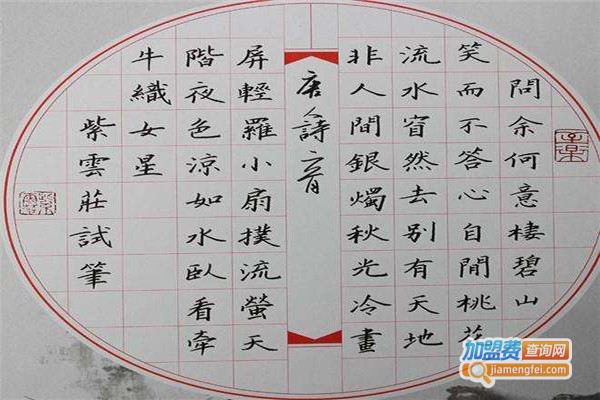 問余何意棲碧山
笑而不答心自閒桃花
流水窅然去别有天地
非人間銀燭秋光冷畫
唐人詩二首
屏輕羅小扇撲流螢天
階夜色涼如水臥看牽
牛織女星
紫雲莊試筆
加盟费查询网
jiamengfei.com